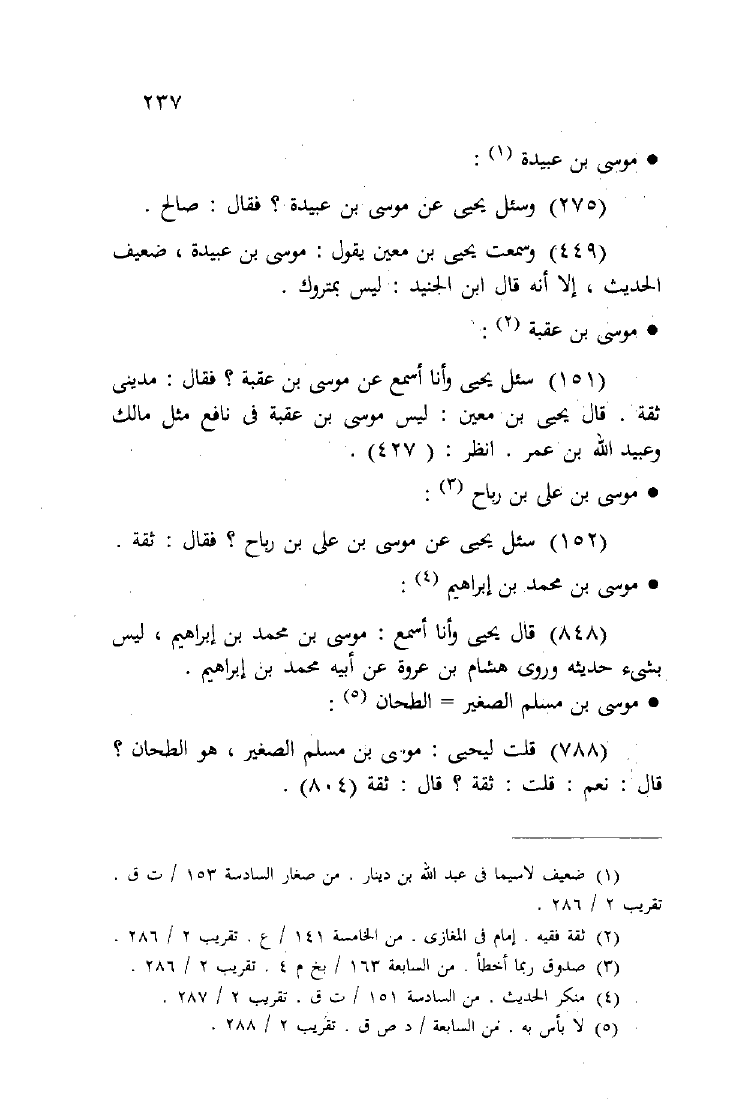 ٢٣٧
● موسى بن عبيدة (١) :
(٢٧٥) وسئل يحيى عن موسى بن عبيدة ؟ فقال : صالح .
(٤٤٩) وسمعت يحيى بن معين يقول : موسى بن عبيدة ، ضعيف
الحديث ، إلا أنه قال ابن الجنيد : ليس بمتروك .
● موسى بن عقبة (٢) :
(١٥١) سئل يحيى وأنا أسمع عن موسى بن عقبة ؟ فقال : مدينى
ثقة . قال يحيى بن معين : ليس موسى بن عقبة فى نافع مثل مالك
وعبيد الله بن عمر . انظر : ( ٤٢٧) .
● موسى بن على بن رباح (٣) :
(١٥٢) سئل يحيى عن موسى بن على بن رباح ؟ فقال : ثقة .
● موسى بن محمد بن إبراهيم (٤) :
(٨٤٨) قال يحيى وأنا أسمع : موسى بن محمد بن إبراهيم ، ليس
بشىء حديثه وروى هشام بن عروة عن أبيه محمد بن إبراهيم .
● موسى بن مسلم الصغير = الطحان (٥) :
(٧٨٨) قلت ليحيى : موسى بن مسلم الصغير ، هو الطحان ؟
قال : نعم : قلت : ثقة ؟ قال : ثقة (٨٠٤) .
(١) ضعيف لاسيما فى عبد الله بن دينار . من صغار السادسة ١٥٣ / ت ق .
تقريب ٢ / ٢٨٦ .
(٢) ثقة فقيه . إمام فى المغازى . من الخامسة ١٤١ / ع . تقريب ٢ / ٢٨٦ .
(٣) صدوق ربما أخطأ . من السابعة ١٦٣ / بخ م ٤ . تقريب ٢ / ٢٨٦ .
(٤) منكر الحديث . من السادسة ١٥١ / ت ق . تقريب ٢ / ٢٨٧ .
(٥) لا بأس به . من السابعة / د ص ق . تقريب ٢ / ٢٨٨ .